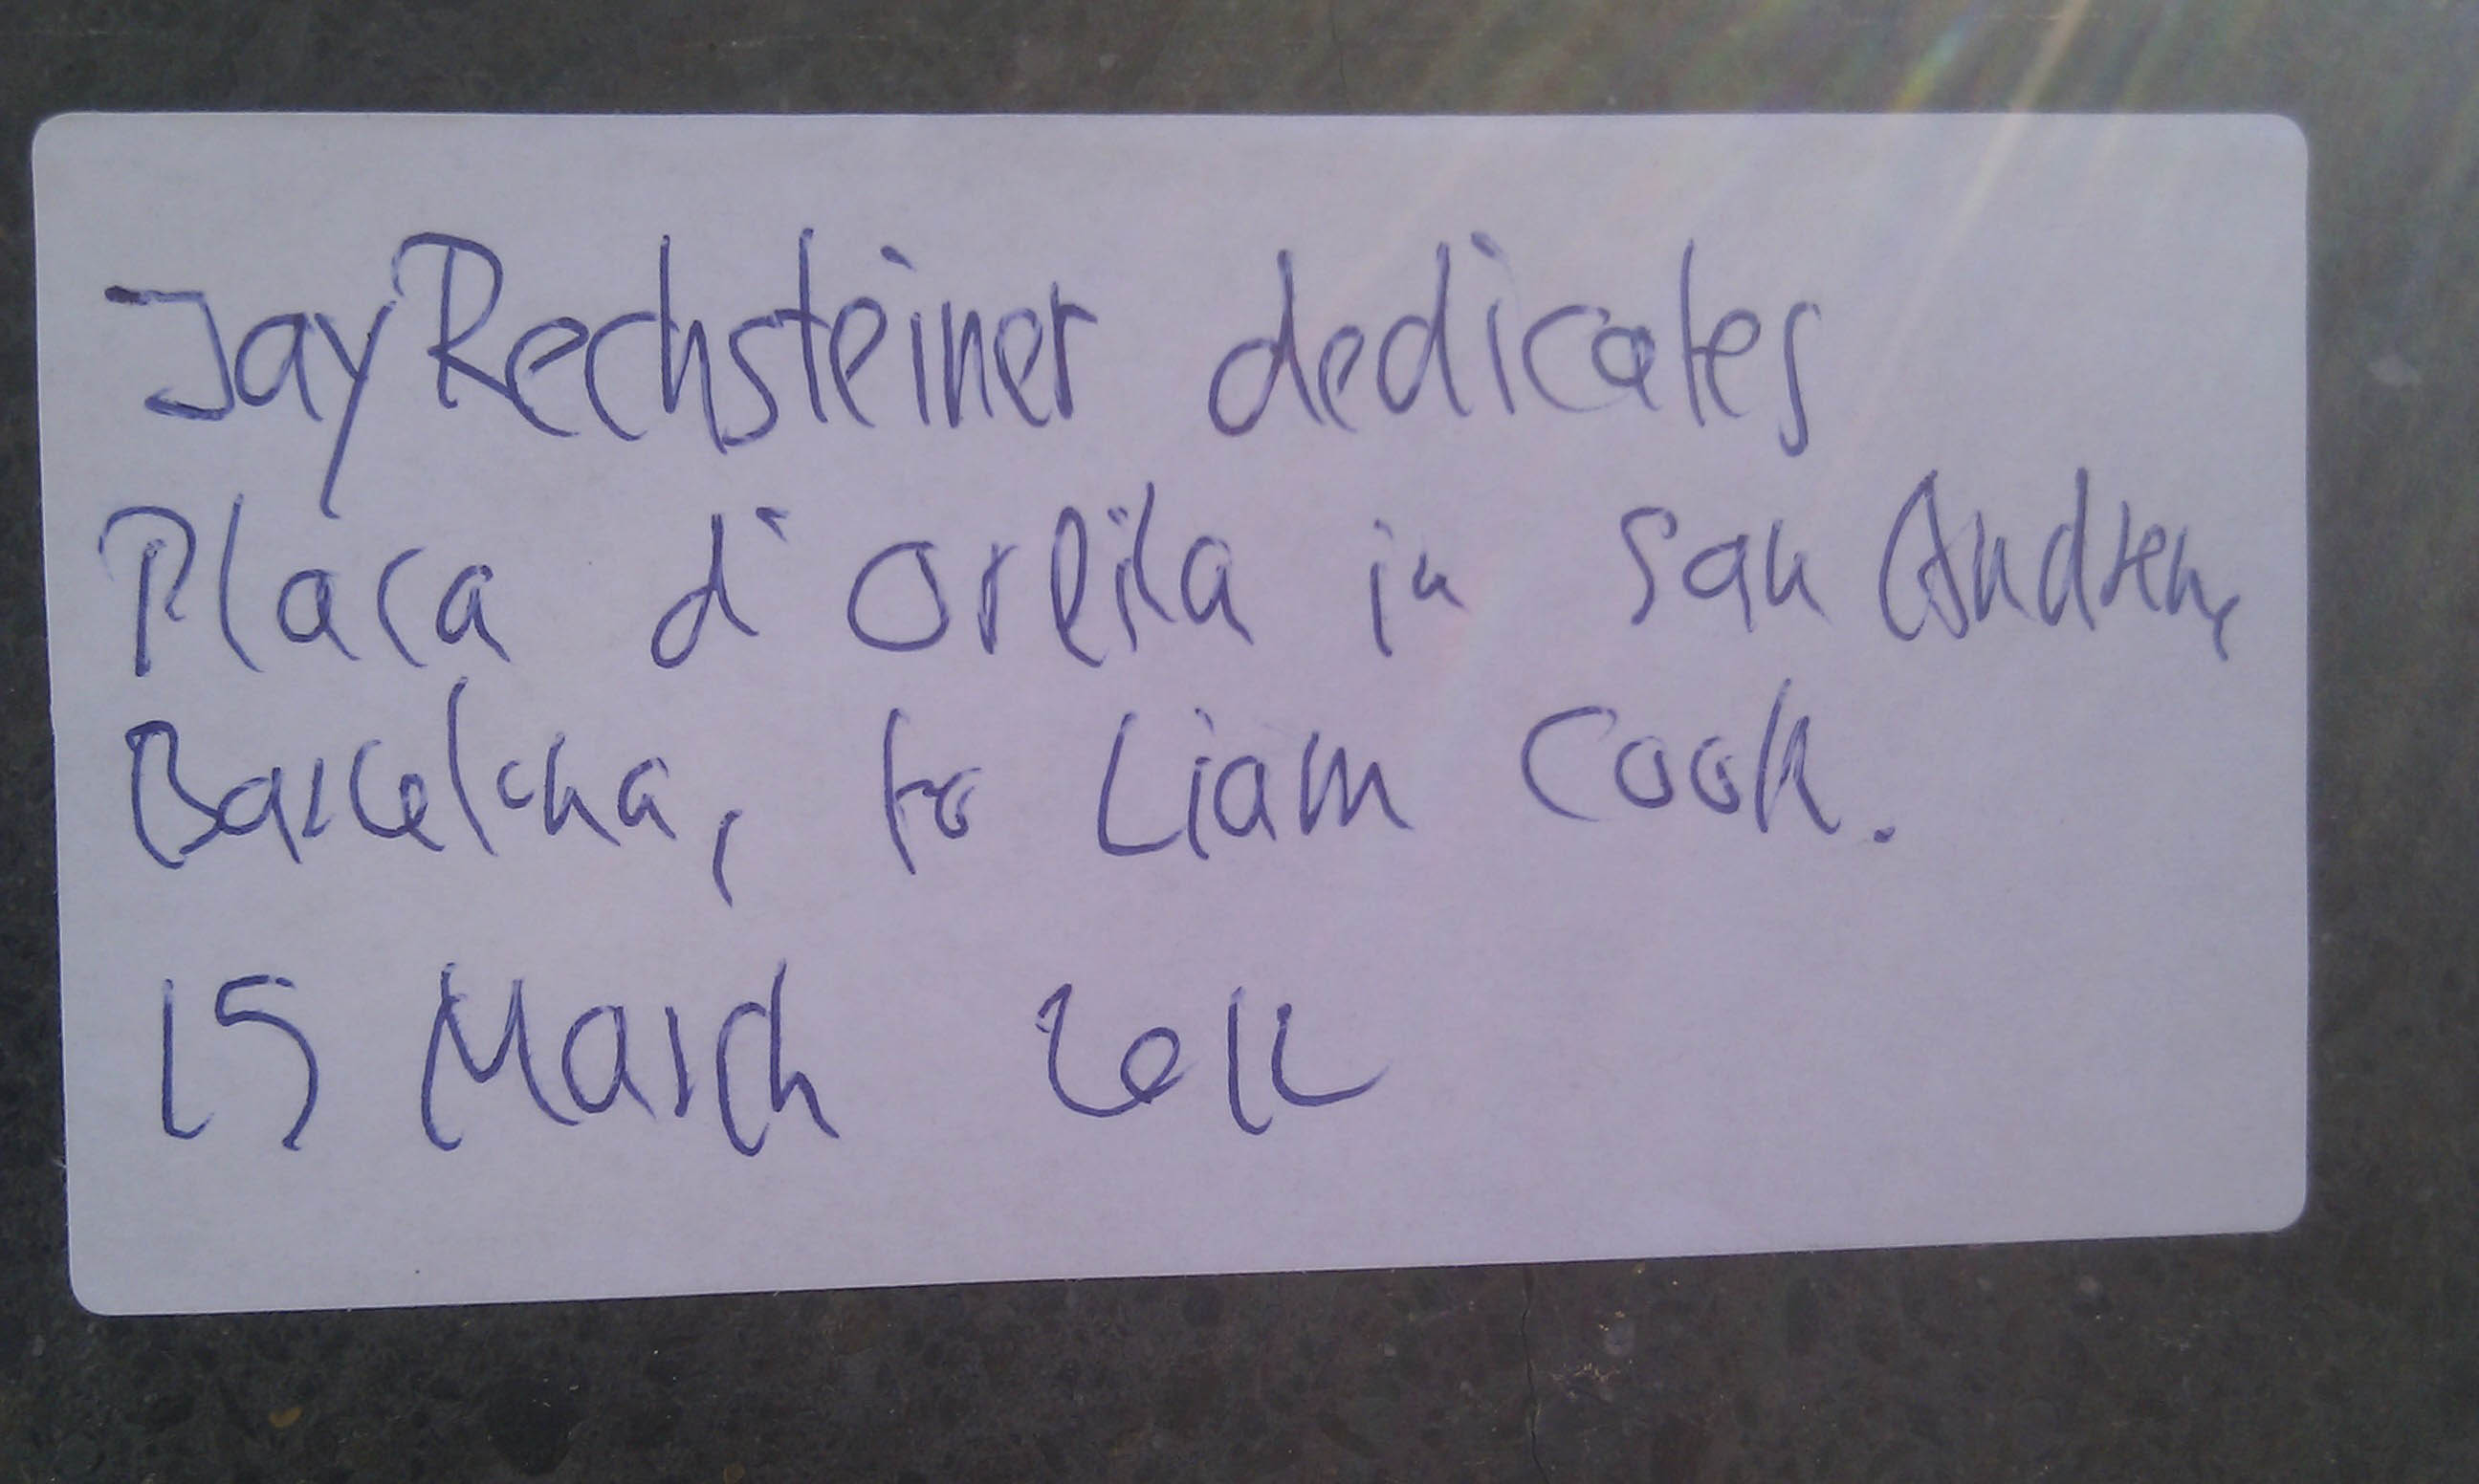 Jay Rechsteiner dedicates
Placa d'Orfila in San Andreu,
Barcelona, to Liam Cook.
15 March 2012